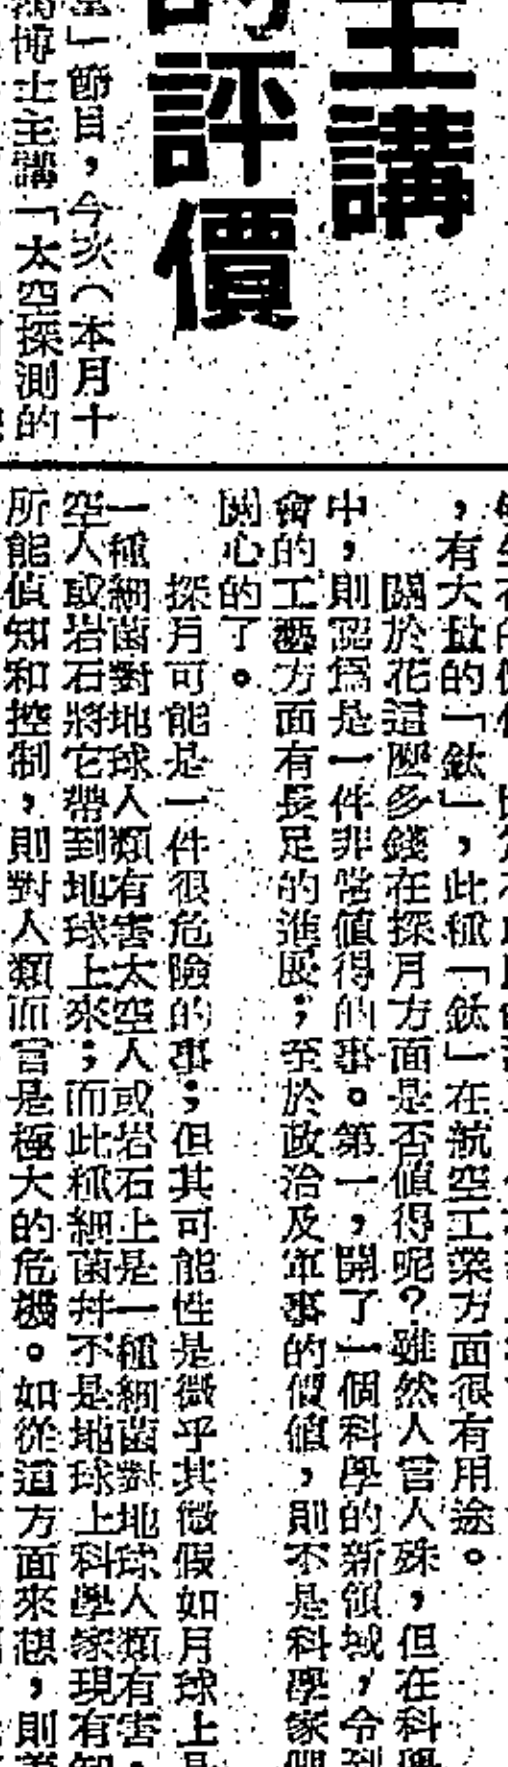 主講
的評價
室」節目，今次（本月十
博士主講「太空探測的
，有大量的「鈦」，此種「鈦」在航空工業方面很有用途。
關於花這麼多錢在探月方面是否值得呢？雖然人言人殊，但在科學
中，則認爲是一件非常值得的事。第一，開了一個科學的新領域，令到
會的工藝方面有長足的進展；至於政治及軍事的價值，則不是科學家們
關心的了。
探月可能是一件很危險的事；但其可能性是微乎其微假如月球上是
一種細菌對地球人類有害太空人或岩石上是一種細菌對地球人類有害，
空人或岩石將它帶到地球上來；而此種細菌幷不是地球上科學家現有知
所能偵知和控制，則對人類而言是極大的危機。如從這方面來想，則